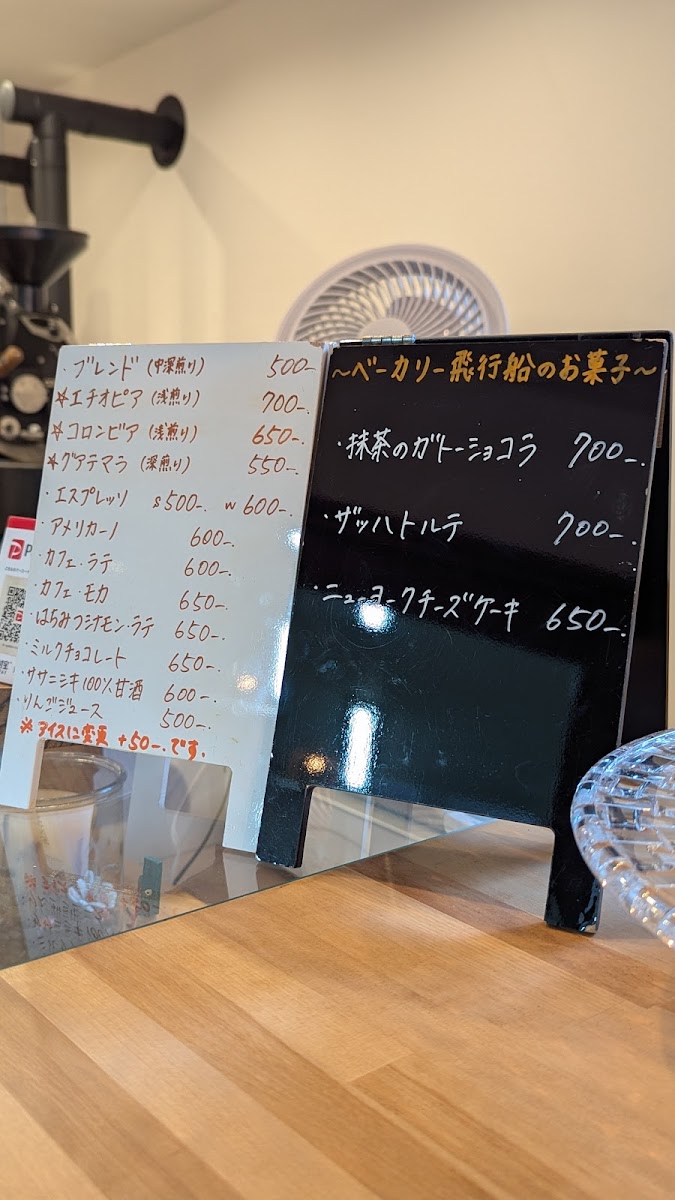 ・ブレンド (中深煎り) 500-
☆エチオピア (浅煎り) 700-.
☆コロンビア (浅煎り) 650-.
☆グアテマラ (深煎り) 550-.
・エスプレッソ s500-. w600-.
・アメリカーノ 600-.
・カフェ・ラテ 600-.
・カフェ・モカ 650-.
・はちみつシナモン・ラテ 650-.
・ミルクチョコレート 650-.
・ササニシキ100%甘酒 600-.
・りんごジュース 500-.
※アイスに変更 +50-.です.
～ベーカリー飛行船のお菓子～
・抹茶のガトーショコラ 700-.
・ザッハトルテ 700-.
・ニューヨークチーズケーキ 650-.
P